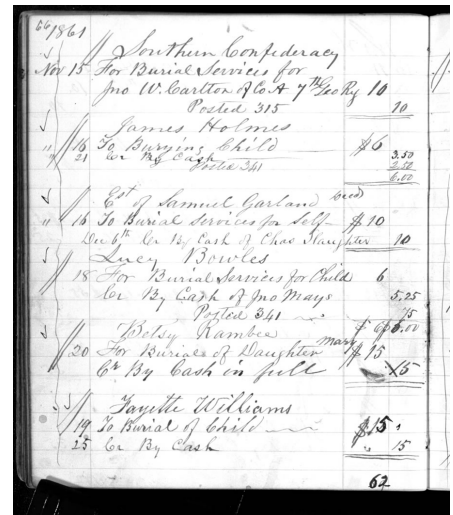 66 1861
Southern Confederacy
Nov 15 For Burial Services for
Jno W. Carlton of Co. A 7th Geo Reg 10
Posted 315 10
James Holmes
" 16 To Burying Child $6
" 21 Cr By Cash 3.50
Posted 341 2.50
6.00
Est of Samuel Garland Decd
" 16 To Burial Services for Self $10
Dec 6th Cr By Cash of Chas Slaughter 10
Lucy Bowles
18 For Burial Services for Child 6
Cr By Cash of Jno Mays 5.25
Posted 341 75
$ 6 6.00
Betsy Rambee
20 For Burial of Daughter Mary $15
Cr By Cash in full 15
Fayette Williams
19 To Burial of Child $15
25 Cr By Cash 15
62